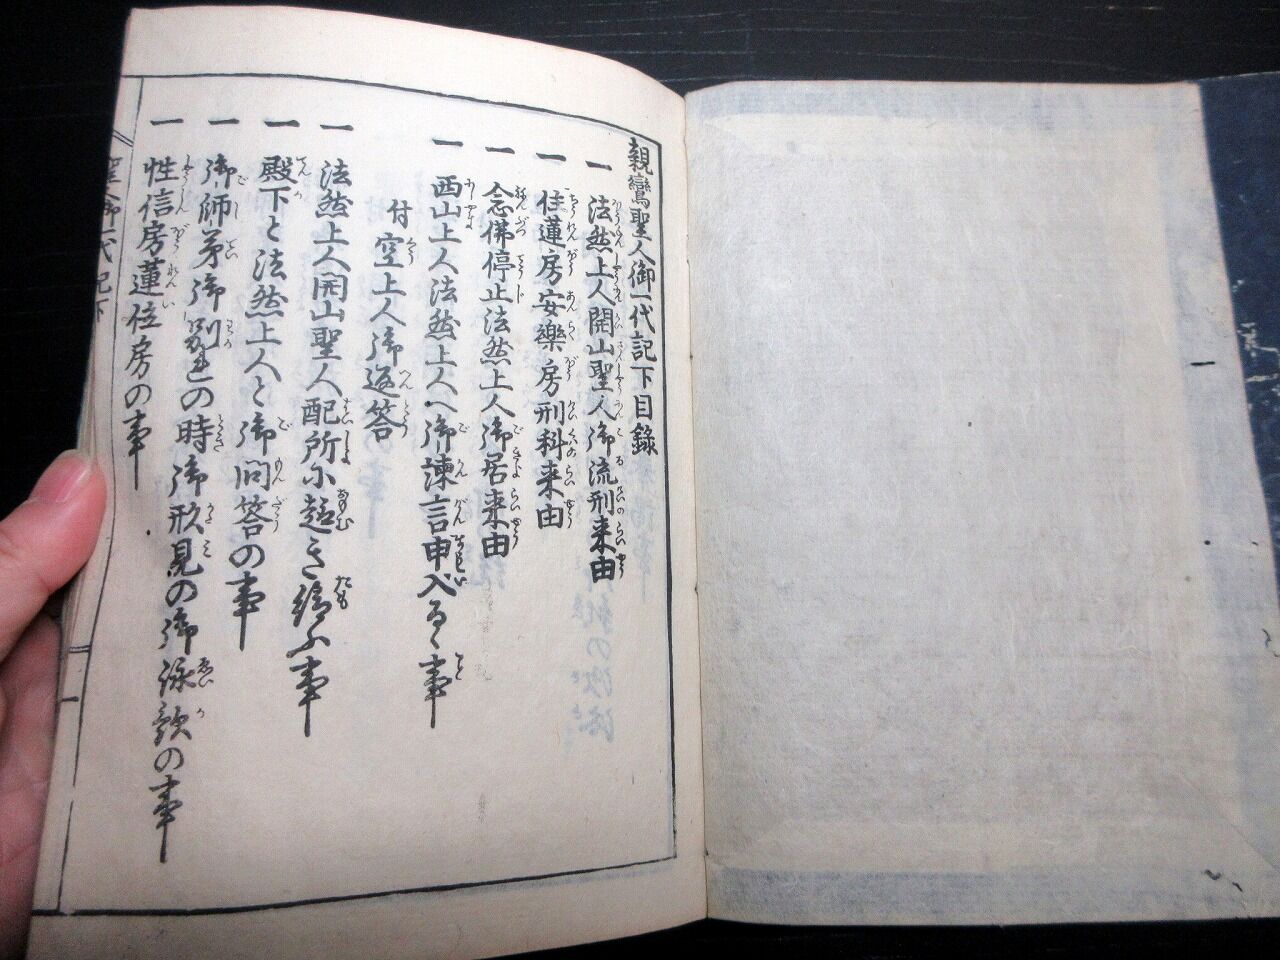 親鸞聖人御一代記下目録
一 法然上人開山聖人御流刑来由
一 住蓮房安樂房刑科来由
一 念佛停止法然上人御居来由
一 西山上人法然上人へ御諫言申入るゝ事
付 空上人御返答
一 法然上人開山聖人配所に趣き給ふ事
一 殿下と法然上人と御問答の事
一 御師弟御別れの時御形見の御詠歌の事
一 性信房蓮位房の事
聖人御一代記下